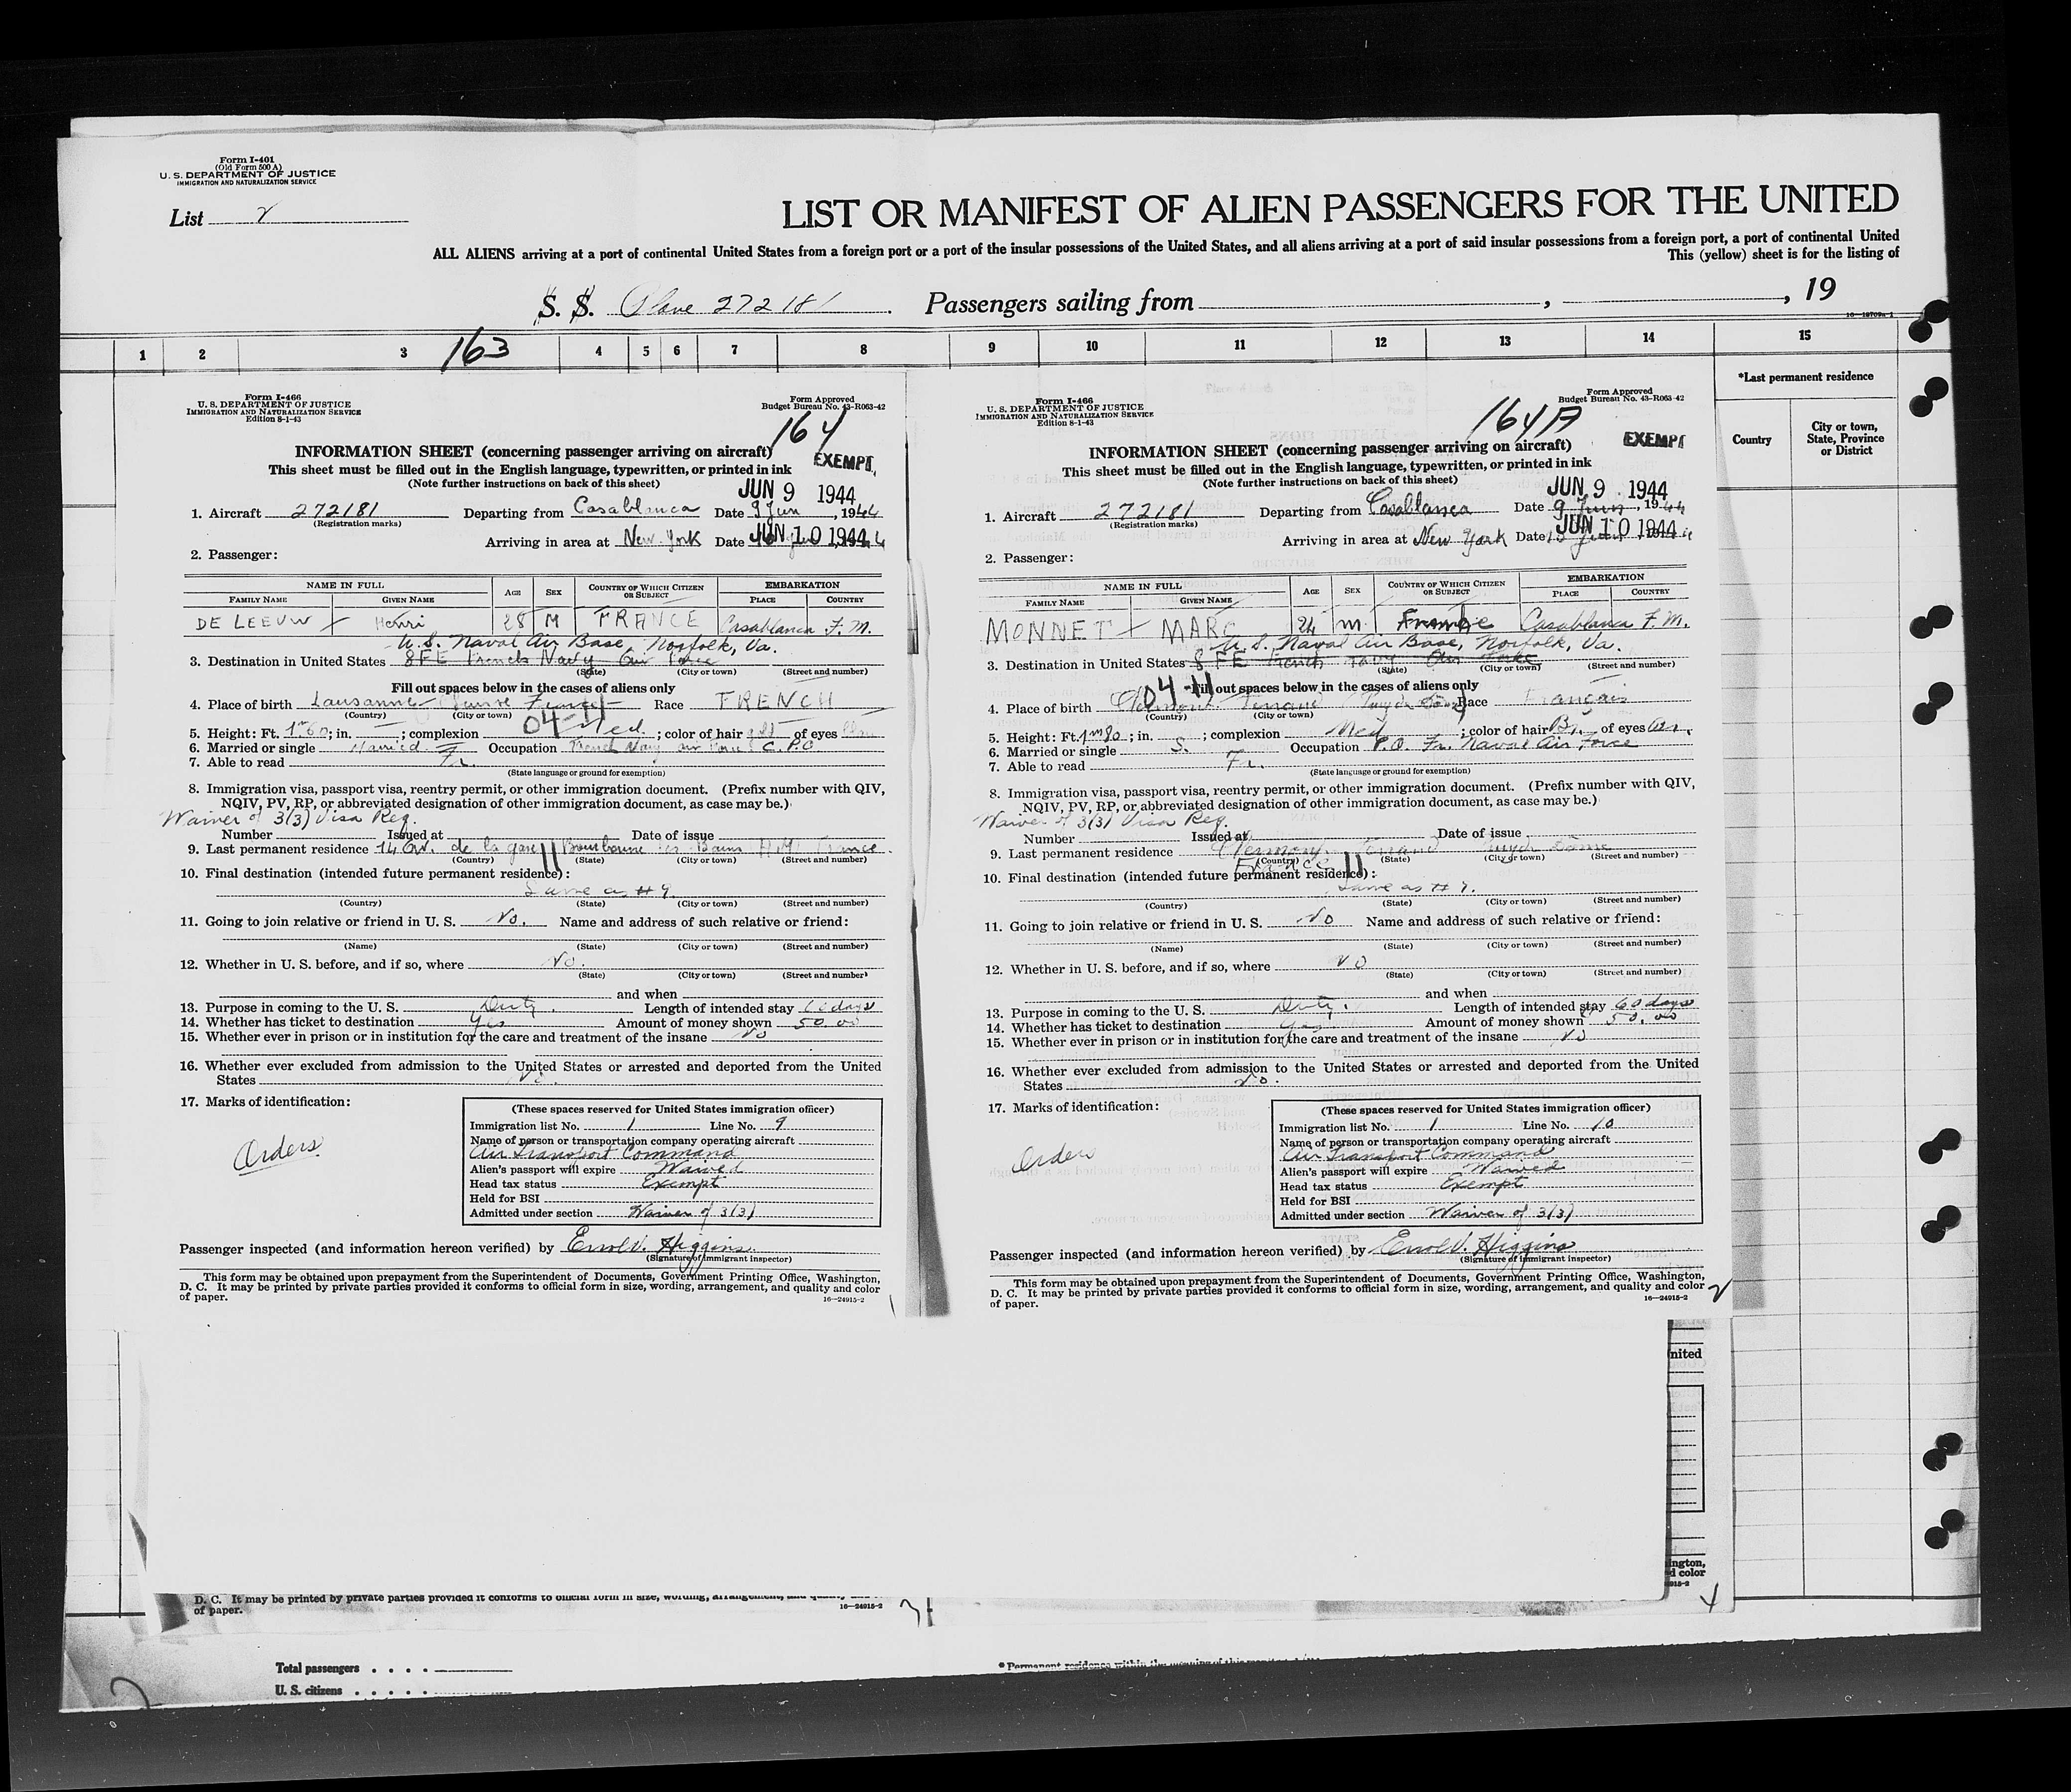 Form I-401
(Old Form 500 A)
U. S. DEPARTMENT OF JUSTICE
IMMIGRATION AND NATURALIZATION SERVICE
List 2
LIST OR MANIFEST OF ALIEN PASSENGERS FOR THE UNITED
ALL ALIENS arriving at a port of continental United States from a foreign port or a port of the insular possessions of the United States, and all aliens arriving at a port of said insular possessions from a foreign port, a port of continental United
This (yellow) sheet is for the listing of
S. S. Plane 272181. Passengers sailing from , , 19
1 2 3 163 4 5 6 7 8 9 10 11 12 13 14 15
*Last permanent residence
Country
City or town, State, Province or District
Form I-466
U. S. DEPARTMENT OF JUSTICE
IMMIGRATION AND NATURALIZATION SERVICE
Edition 8-1-43
Form Approved
Budget Bureau No. 43-R063-42
164
INFORMATION SHEET (concerning passenger arriving on aircraft)
EXEMPT.
This sheet must be filled out in the English language, typewritten, or printed in ink
(Note further instructions on back of this sheet)
JUN 9 1944
1. Aircraft 272181 Departing from Casablanca Date 9 Jun, 1944
(Registration marks)
JUN 10 1944
Arriving in area at New York Date
2. Passenger:
NAME IN FULL AGE SEX COUNTRY OF WHICH CITIZEN OR SUBJECT EMBARKATION
FAMILY NAME GIVEN NAME PLACE COUNTRY
DE LEEUW Henri 28 M FRANCE Casablanca F.M.
U.S. Naval Air Base, Norfolk, Va.
3. Destination in United States 8FE French Navy Air Force
(State) (City or town) (Street and number)
Fill out spaces below in the cases of aliens only
4. Place of birth Lausanne Suisse Race FRENCH
(Country) (City or town)
04-11
5. Height: Ft. 1m60; in. ; complexion Med.; color of hair gold of eyes
6. Married or single Married Occupation French Navy air Force C.P.O
7. Able to read Fr.
(State language or ground for exemption)
8. Immigration visa, passport visa, reentry permit, or other immigration document. (Prefix number with QIV,
NQIV, PV, RP, or abbreviated designation of other immigration document, as case may be.)
Waiver of 3(3) Visa Req.
Number Issued at Date of issue
9. Last permanent residence 14 Av. de la gare Bourbonne les Bains H.M. France
(Country) (State) (City or town) (Street and number)
10. Final destination (intended future permanent residence):
Same as #9.
(Country) (State) (City or town) (Street and number)
11. Going to join relative or friend in U. S. No. Name and address of such relative or friend:
(Name) (State) (City or town) (Street and number)
12. Whether in U. S. before, and if so, where No.
(State) (City or town) (Street and number)
and when
13. Purpose in coming to the U. S. Duty. Length of intended stay 60 days
14. Whether has ticket to destination Yes Amount of money shown 50.00
15. Whether ever in prison or in institution for the care and treatment of the insane No
16. Whether ever excluded from admission to the United States or arrested and deported from the United
States No.
17. Marks of identification:
Orders
(These spaces reserved for United States immigration officer)
Immigration list No. 1 Line No. 9
Name of person or transportation company operating aircraft
Air Transport Command
Alien's passport will expire Waived
Head tax status Exempt
Held for BSI
Admitted under section Waiver of 3(3)
Passenger inspected (and information hereon verified) by Errol V. Higgins
(Signature of immigrant inspector)
This form may be obtained upon prepayment from the Superintendent of Documents, Government Printing Office, Washington,
D. C. It may be printed by private parties provided it conforms to official form in size, wording, arrangement, and quality and color
of paper.
16—24915-2
Form I-466
U. S. DEPARTMENT OF JUSTICE
IMMIGRATION AND NATURALIZATION SERVICE
Edition 8-1-43
Form Approved
Budget Bureau No. 43-R063-42
164A
INFORMATION SHEET (concerning passenger arriving on aircraft)
EXEMPT
This sheet must be filled out in the English language, typewritten, or printed in ink
(Note further instructions on back of this sheet)
JUN 9 1944
1. Aircraft 272181 Departing from Casablanca Date 9 Juin, 1944
(Registration marks)
JUN 10 1944
Arriving in area at New York Date
2. Passenger:
NAME IN FULL AGE SEX COUNTRY OF WHICH CITIZEN OR SUBJECT EMBARKATION
FAMILY NAME GIVEN NAME PLACE COUNTRY
MONNET MARC 24 M France Casablanca F.M.
U.S. Naval Air Base, Norfolk, Va.
3. Destination in United States 8 FE French Navy Air Force
(State) (City or town) (Street and number)
04-11
Fill out spaces below in the cases of aliens only
4. Place of birth Clermont Ferrand Puy de Dome Race Français
(Country) (City or town)
5. Height: Ft. 1m80; in. ; complexion Med; color of hair Br. of eyes
6. Married or single S. Occupation P.O. Fr. Naval Air Force
7. Able to read Fr.
(State language or ground for exemption)
8. Immigration visa, passport visa, reentry permit, or other immigration document. (Prefix number with QIV,
NQIV, PV, RP, or abbreviated designation of other immigration document, as case may be.)
Waiver of 3(3) Visa Req.
Number Issued at Date of issue
9. Last permanent residence Clermont Ferrand Puy de Dome
(Country) (State) (City or town) (Street and number)
France
10. Final destination (intended future permanent residence):
Same as #9.
(Country) (State) (City or town) (Street and number)
11. Going to join relative or friend in U. S. No Name and address of such relative or friend:
(Name) (State) (City or town) (Street and number)
12. Whether in U. S. before, and if so, where No
(State) (City or town) (Street and number)
and when
13. Purpose in coming to the U. S. Duty. Length of intended stay 60 days
14. Whether has ticket to destination Yes Amount of money shown 50.00
15. Whether ever in prison or in institution for the care and treatment of the insane No
16. Whether ever excluded from admission to the United States or arrested and deported from the United
States No.
17. Marks of identification:
Orders
(These spaces reserved for United States immigration officer)
Immigration list No. 1 Line No. 10
Name of person or transportation company operating aircraft
Air Transport Command
Alien's passport will expire Waived
Head tax status Exempt
Held for BSI
Admitted under section Waiver of 3(3)
Passenger inspected (and information hereon verified) by Errol V. Higgins
(Signature of immigrant inspector)
This form may be obtained upon prepayment from the Superintendent of Documents, Government Printing Office, Washington,
D. C. It may be printed by private parties provided it conforms to official form in size, wording, arrangement, and quality and color
of paper.
16—24915-2
2
nited
ington,
d color
915-2
D. C. It may be printed by private parties provided it conforms to official form in size, wording, arrangement, and
of paper.
16—24915-2
Total passengers . . . .
U. S. citizens . . . . .
*Permanent residence within the meaning of this